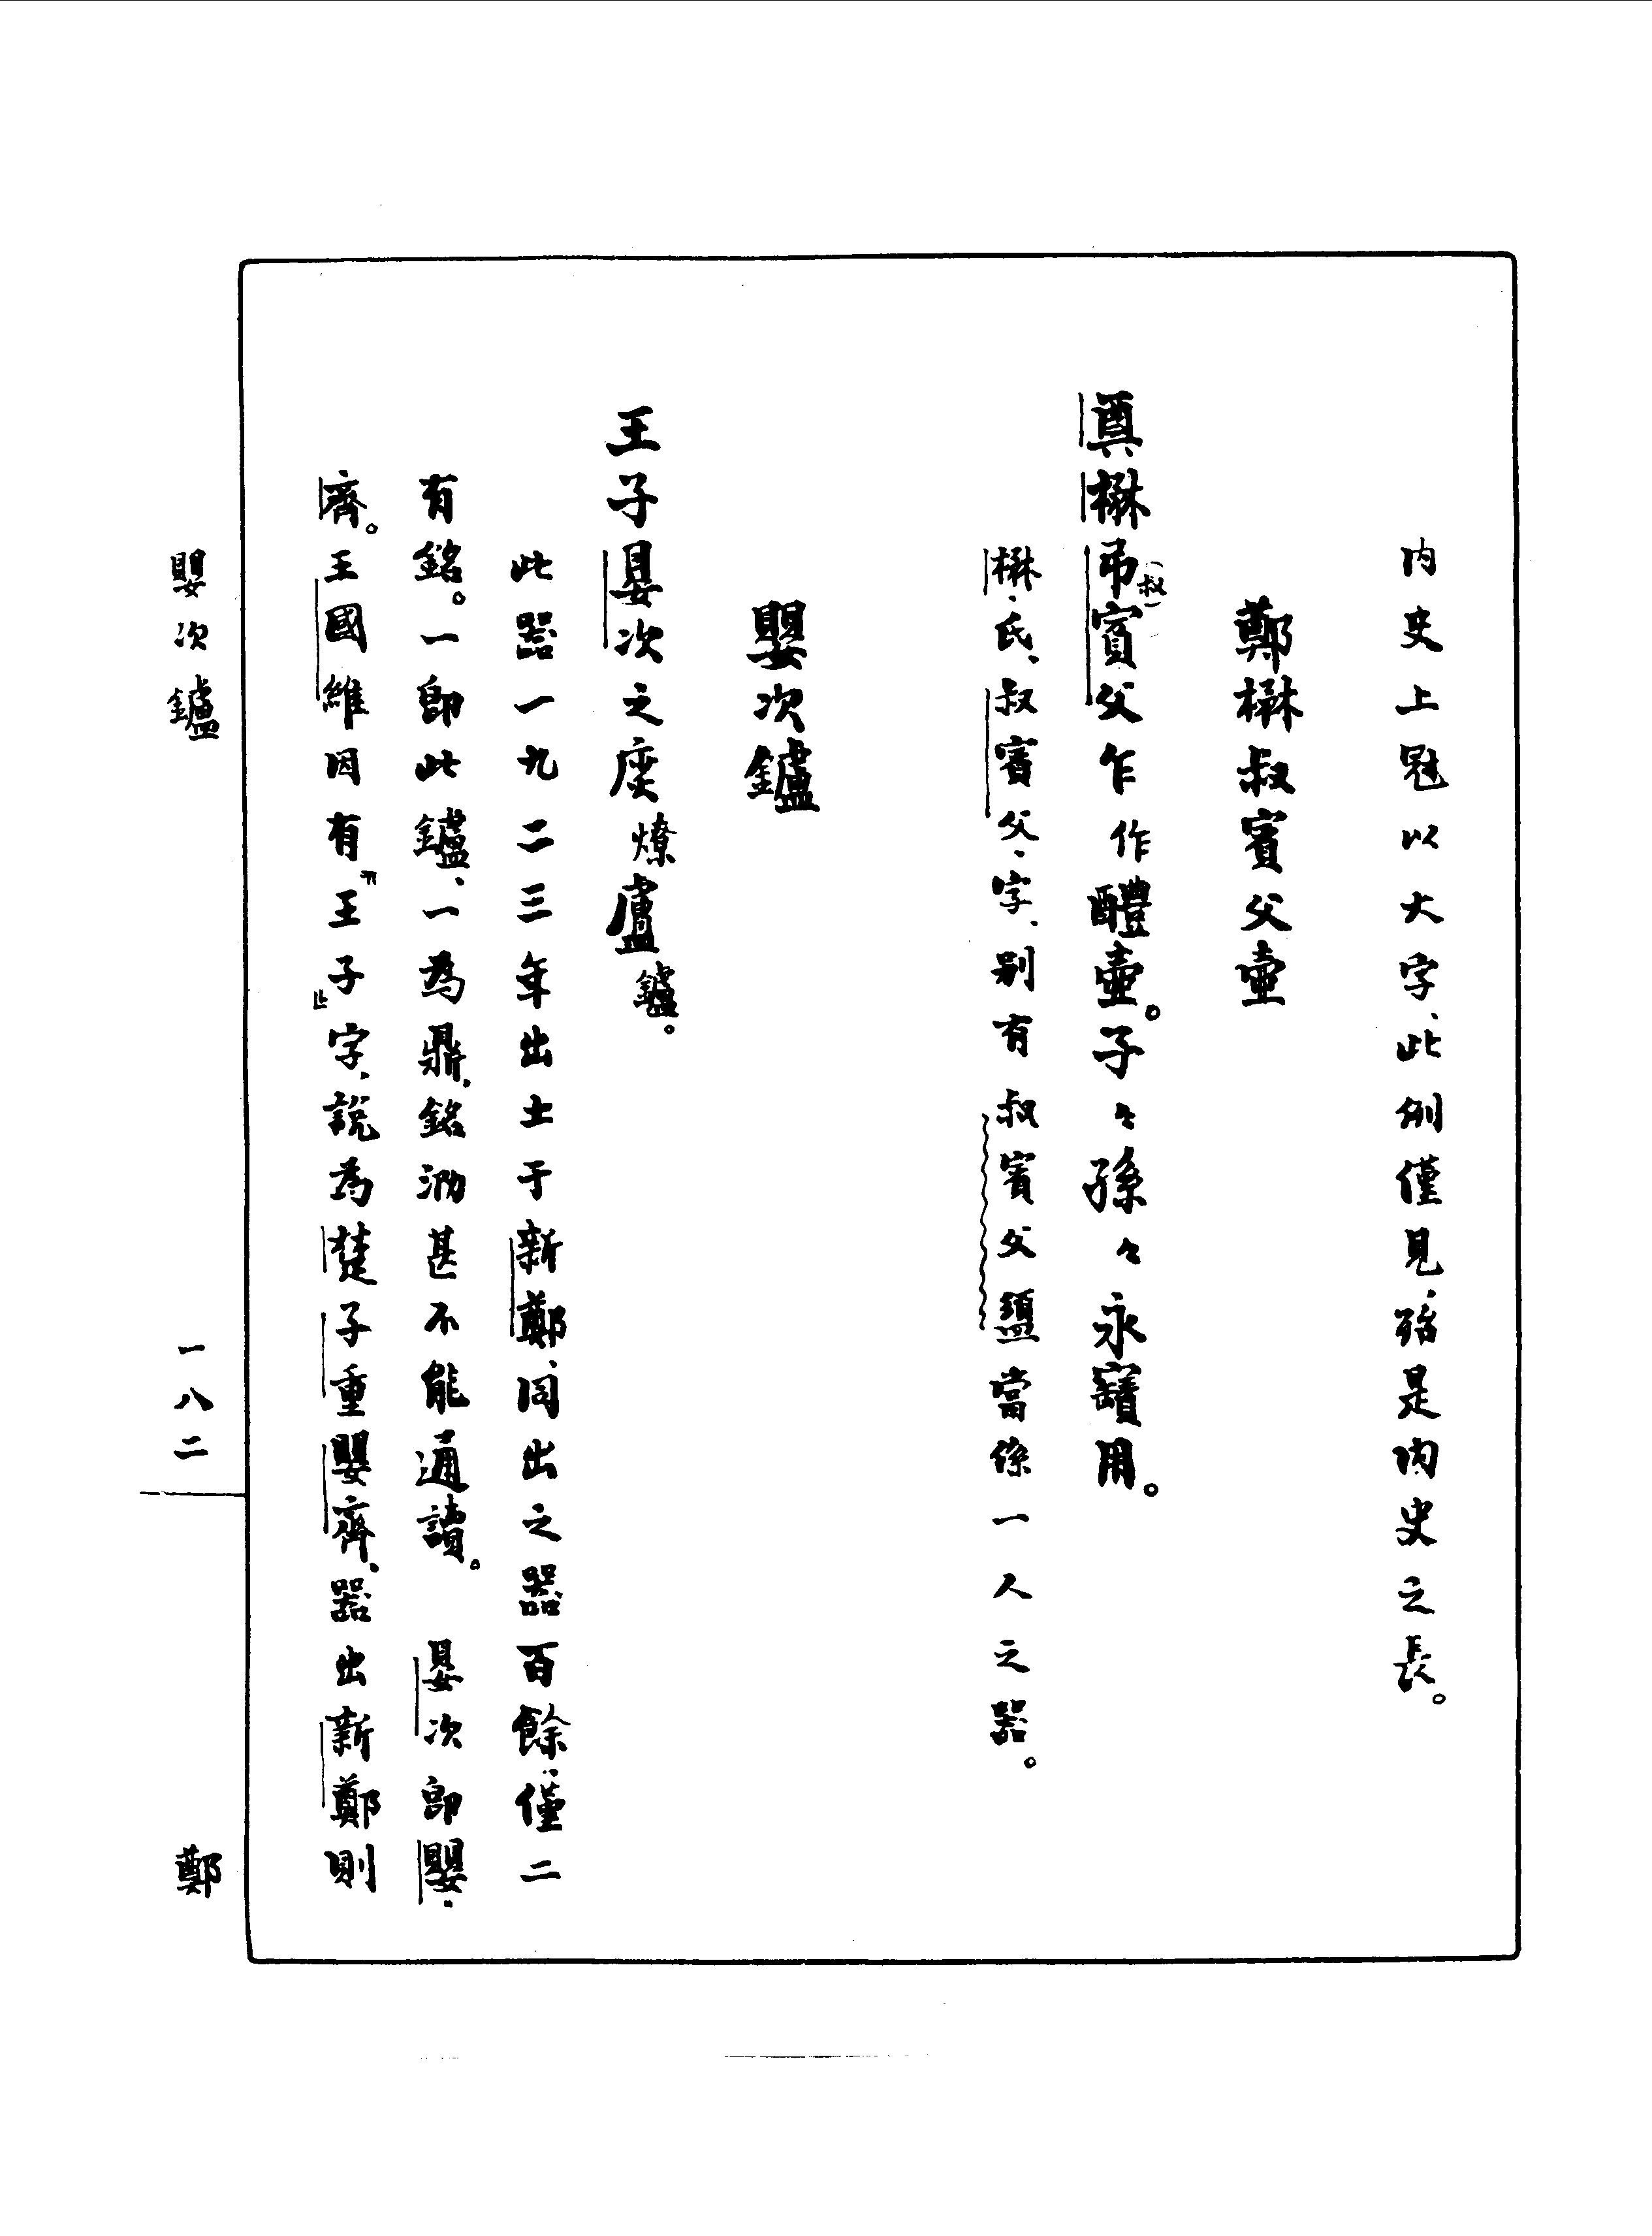 内史上冠以大字、此例僅見、殆是内史之長。
鄭楙叔賓父壺
奠楙弔(叔)賓父乍作醴壺。子〻孫〻永寶用。
楙、氏、叔賓父、字、别有叔賓父盨當係一人之器。
嬰次鑪
王子㛐次之燎盧鑪。
此器一九二三年出土于新鄭、同出之器百餘、僅二
有銘。一卽此鑪、一為鼎、銘泐甚不能通讀。 㛐次卽嬰
齊。王國維因有『王子』字、説為楚子重嬰齊、器出新鄭則
嬰次鑪
一八二
鄭